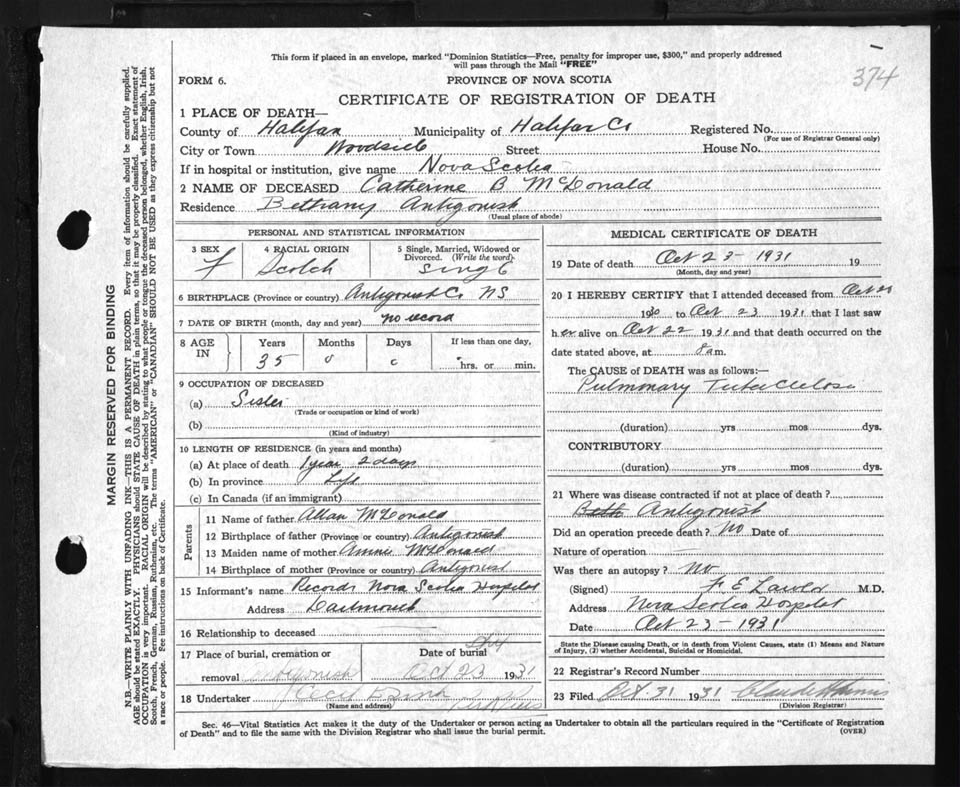 This form if placed in an envelope, marked "Dominion Statistics—Free, penalty for improper use, $300," and properly addressed
will pass through the Mail "FREE"
374
FORM 6.
PROVINCE OF NOVA SCOTIA
CERTIFICATE OF REGISTRATION OF DEATH
1 PLACE OF DEATH—
County of Halifax Municipality of Halifax Co Registered No.
(For use of Registrar General only)
City or Town Woodside Street House No.
If in hospital or institution, give name Nova Scotia
2 NAME OF DECEASED Catherine B McDonald
Residence Bethany Antigonish
(Usual place of abode)
PERSONAL AND STATISTICAL INFORMATION
3 SEX
F
4 RACIAL ORIGIN
Scotch
5 Single, Married, Widowed or
Divorced. (Write the word)
Single
6 BIRTHPLACE (Province or country) Antigonish Co NS
7 DATE OF BIRTH (month, day and year) no record
8 AGE
IN
Years Months Days If less than one day,
35 0 0 hrs. or min.
9 OCCUPATION OF DECEASED
(a) Sister
(Trade or occupation or kind of work)
(b)
(Kind of industry)
10 LENGTH OF RESIDENCE (in years and months)
(a) At place of death 1 year 2 days
(b) In province Life
(c) In Canada (if an immigrant)
Parents
11 Name of father Allan McDonald
12 Birthplace of father (Province or country) Antigonish
13 Maiden name of mother Annie McDonald
14 Birthplace of mother (Province or country) Antigonish
15 Informant's name Records Nova Scotia Hospital
Address Dartmouth
16 Relationship to deceased
17 Place of burial, cremation or Date of burial
removal Antigonish Oct 23 1931
18 Undertaker
(Name and address)
MEDICAL CERTIFICATE OF DEATH
19 Date of death Oct 23 - 1931 19
(Month, day and year)
20 I HEREBY CERTIFY that I attended deceased from Oct 20
1930 to Oct 23 1931 that I last saw
her alive on Oct 22 1931 and that death occurred on the
date stated above, at 8 am.
The CAUSE of DEATH was as follows:—
Pulmonary Tuberculosis
(duration) yrs mos dys.
CONTRIBUTORY
(duration) yrs mos dys.
21 Where was disease contracted if not at place of death?
Beth Antigonish
Did an operation precede death? no Date of
Nature of operation
Was there an autopsy? No
(Signed) F E Lawlor M.D.
Address Nova Scotia Hospital
Date Oct 23 - 1931
State the Disease causing Death, or in death from Violent Causes, state (1) Means and Nature
of Injury, (2) whether Accidental, Suicidal or Homicidal.
22 Registrar's Record Number
23 Filed Oct 31 1931
(Division Registrar)
Sec. 46—Vital Statistics Act makes it the duty of the Undertaker or person acting as Undertaker to obtain all the particulars required in the "Certificate of Registration
of Death" and to file the same with the Division Registrar who shall issue the burial permit.
(OVER)
MARGIN RESERVED FOR BINDING
N.B.—WRITE PLAINLY WITH UNFADING INK—THIS IS A PERMANENT RECORD. Every item of information should be carefully supplied.
AGE should be stated EXACTLY. PHYSICIANS should STATE CAUSE OF DEATH in plain terms, so that it may be properly classified. Exact statement of
OCCUPATION is very important. RACIAL ORIGIN will be described by stating to what people or tongue the deceased person belonged, whether English, Irish,
Scotch, French, German, Russian, Ruthenian, etc. The terms "AMERICAN" or "CANADIAN" SHOULD NOT BE USED as they express citizenship but not
a race or people. Fee instructions on back of Certificate.